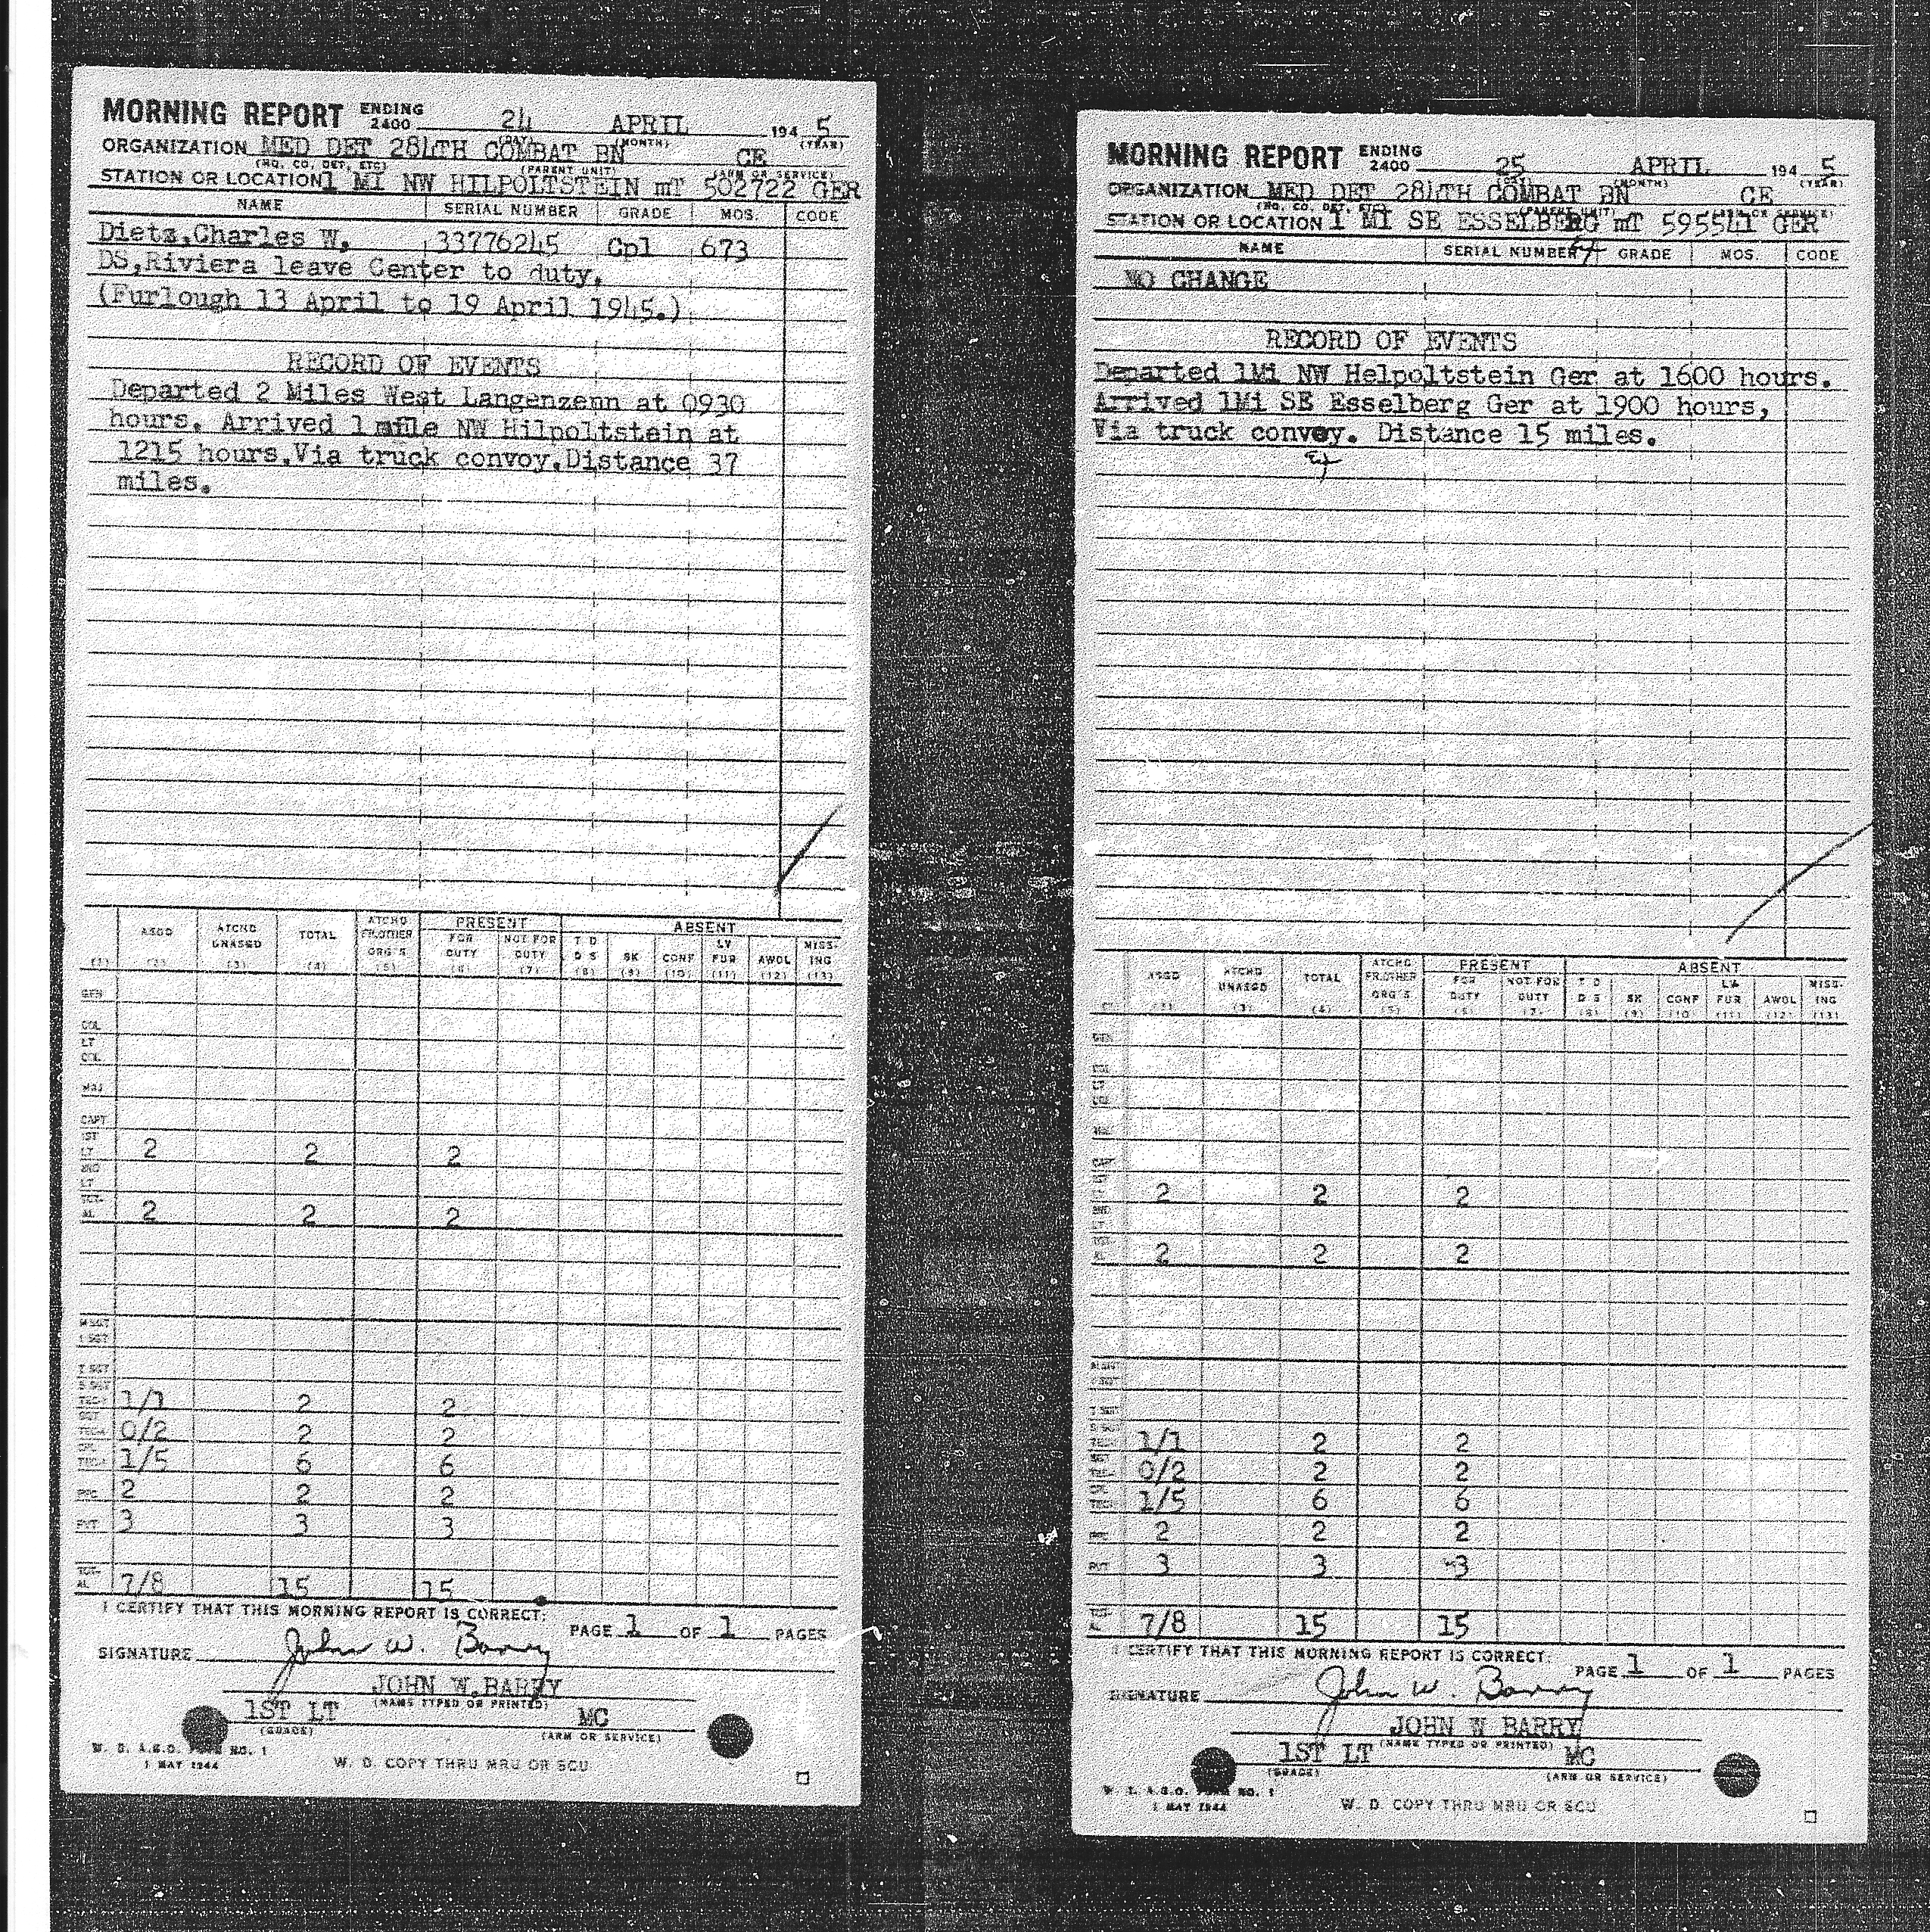 MORNING REPORT ENDING 2400 24 APRIL 194 5
(DAY) (MONTH) (YEAR)
ORGANIZATION MED DET 284TH COMBAT BN CE
(HQ. CO. DET. ETC) (PARENT UNIT) (ARM OR SERVICE)
STATION OR LOCATION 1 MI NW HILPOLTSTEIN mT 502722 GER
NAME SERIAL NUMBER GRADE MOS. CODE
Dietz,Charles W. 33776245 Cpl 673
DS,Riviera leave Center to duty.
(Furlough 13 April to 19 April 1945.)
RECORD OF EVENTS
Departed 2 Miles West Langenzenn at 0930
hours. Arrived 1 mile NW Hilpoltstein at
1215 hours.Via truck convoy.Distance 37
miles.
PRESENT ABSENT
(1) ASGD (2) ATCHD UNASGD (3) TOTAL (4) ATCHD FR.OTHER ORG'S (5) FOR DUTY (6) NOT FOR DUTY (7) T D D S (8) SK (9) CONF (10) LV FUR (11) AWOL (12) MISS-ING (13)
GEN
COL
LT COL
MAJ
CAPT
1ST LT 2 2 2
2ND LT
TOT-AL 2 2 2
M SGT
1 SGT
T SGT
S SGT
1/1 2 2
SGT 0/2 2 2
1/5 6 6
PFC 2 2 2
PVT 3 3 3
TOT-AL 7/8 15 15
I CERTIFY THAT THIS MORNING REPORT IS CORRECT:
PAGE 1 OF 1 PAGES
SIGNATURE John W. Barry
JOHN W.BARRY
(NAME TYPED OR PRINTED)
1ST LT MC
(GRADE) (ARM OR SERVICE)
W. D. A.G.O. FORM NO. 1
1 MAY 1944
W. D. COPY THRU MRU OR SCU
MORNING REPORT ENDING 2400 25 APRIL 194 5
(MONTH) (YEAR)
ORGANIZATION MED DET 284TH COMBAT BN CE
(HQ. CO. DET. ETC) (PARENT UNIT) (ARM OR SERVICE)
STATION OR LOCATION 1 MI SE ESSELBERG mT 595541 GER
NAME SERIAL NUMBER GRADE MOS. CODE
NO CHANGE
RECORD OF EVENTS
Departed 1Mi NW Helpoltstein Ger at 1600 hours.
Arrived 1Mi SE Esselberg Ger at 1900 hours,
Via truck convoy. Distance 15 miles.
PRESENT ABSENT
ASGD ATCHD UNASGD (3) TOTAL (4) ATCHD FR.OTHER ORG'S (5) FOR DUTY (6) NOT FOR DUTY (7) T D D S (8) SK (9) CONF (10) LV FUR (11) AWOL (12) MISS-ING (13)
GEN
2 2 2
2 2 2
1/1 2 2
0/2 2 2
1/5 6 6
2 2 2
PVT 3 3 3
7/8 15 15
I CERTIFY THAT THIS MORNING REPORT IS CORRECT:
PAGE 1 OF 1 PAGES
SIGNATURE John W. Barry
JOHN W BARRY
(NAME TYPED OR PRINTED)
1ST LT MC
(GRADE) (ARM OR SERVICE)
W. D. A.G.O. FORM NO. 1
1 MAY 1944
W. D. COPY THRU MRU OR SCU